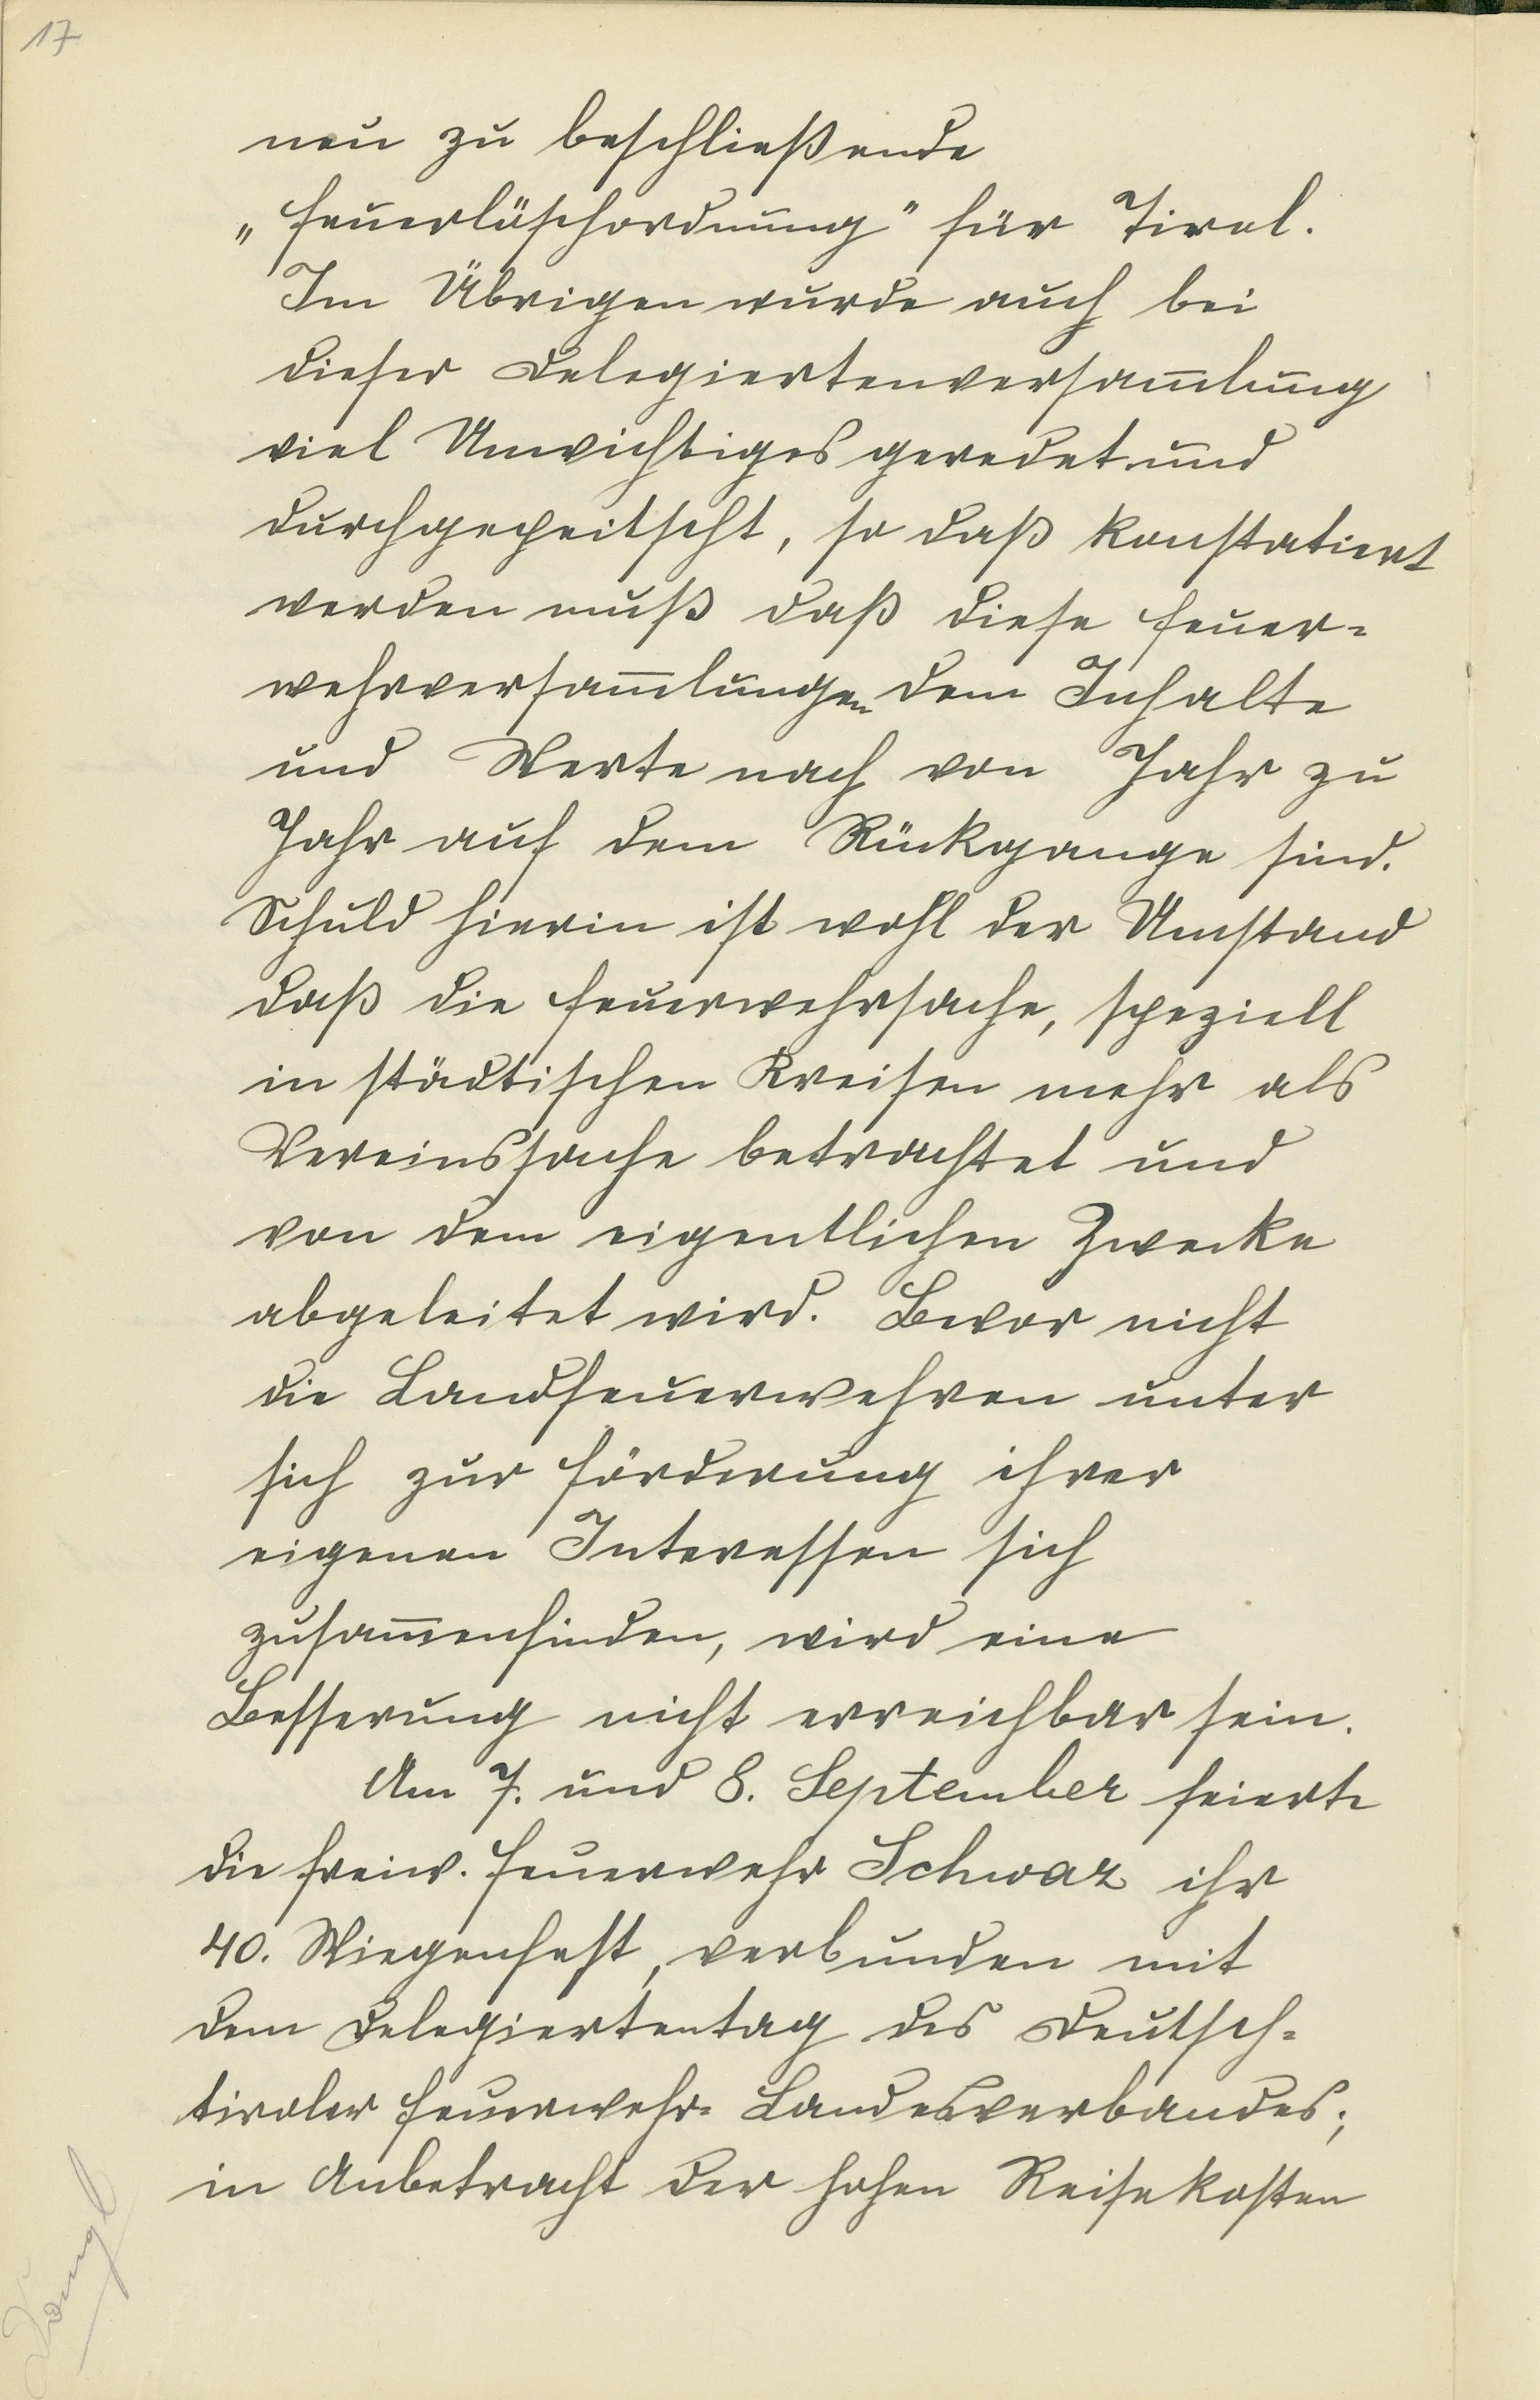 17
neu zu beschließende
„Feuerlöschordnung" für Tirol.
Im Übrigen wurde auch bei
dieser Delegiertenversam̅lung
viel Unwichtiges geredet und
durchgepeitscht, so daß konstatiert
werden muß daß diese Feuer=
wehrversam̅lungen dem Inhalte
und Werte nach von Jahr zu
Jahr auf dem Rückgange sind.
Schuld hierin ist wohl der Umstand
daß die Feuerwehrsache, speziell
in städtischen Kreisen mehr als
Vereinssache betrachtet und
von dem eigentlichen Zwecke
abgeleitet wird. Bevor nicht
die Landfeuerwehren unter
sich zur Förderung ihrer
eigenen Interessen sich
zusam̅enfinden, wird eine
Besserung nicht erreichbar sein.
Am 7. und 8. September feierte
die freiw. Feuerwehr Schwaz ihr
40. Wiegenfest, verbunden mit
dem Delegiertentag des Deutsch=
tiroler Feuerwehr= Landesverbandes;
in Anbetracht der hohen Reisekosten